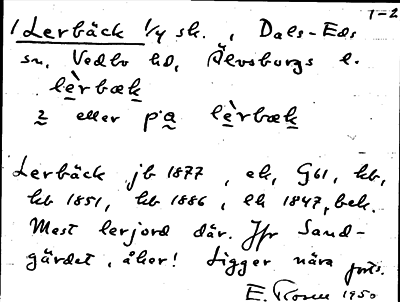 1-2
1 Lerbäck 1/4 sk., Dals-Eds
sn, Vedbo hd, Älvsborgs l.
lèrbæk
2 eller pa lèrbæk
Lerbäck jb 1877, ek, G61, kb,
hb 1851, hb 1886, lk 1847, bek.
Mest lerjord där. Jfr Sand-
gärdet, åker! Ligger nära
E. Rosell 1950